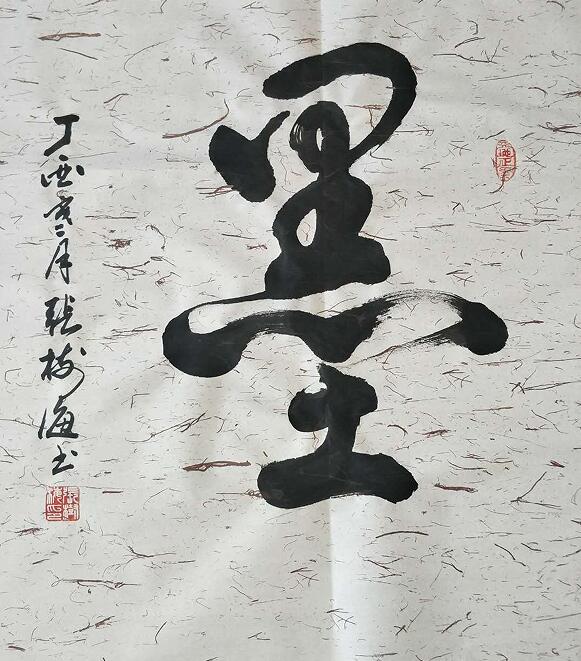 墨
丁酉年二月张树海书